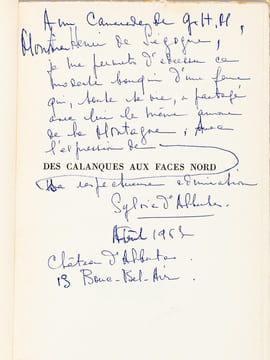 A mon Camarade de G.H.M,
Monsieur Henri de Ségogne,
je me permets d'adresser ce
modeste bouquin d'une femme
qui, toute sa vie, a partagé
avec lui le même amour
de la Montagne, Avec
l'expression de
DES CALANQUES AUX FACES NORD
Sa respectueuse admiration
Sylvia d'Albertas
Avril 1963
Château d'Albertas.
13 Bouc-Bel-Air.